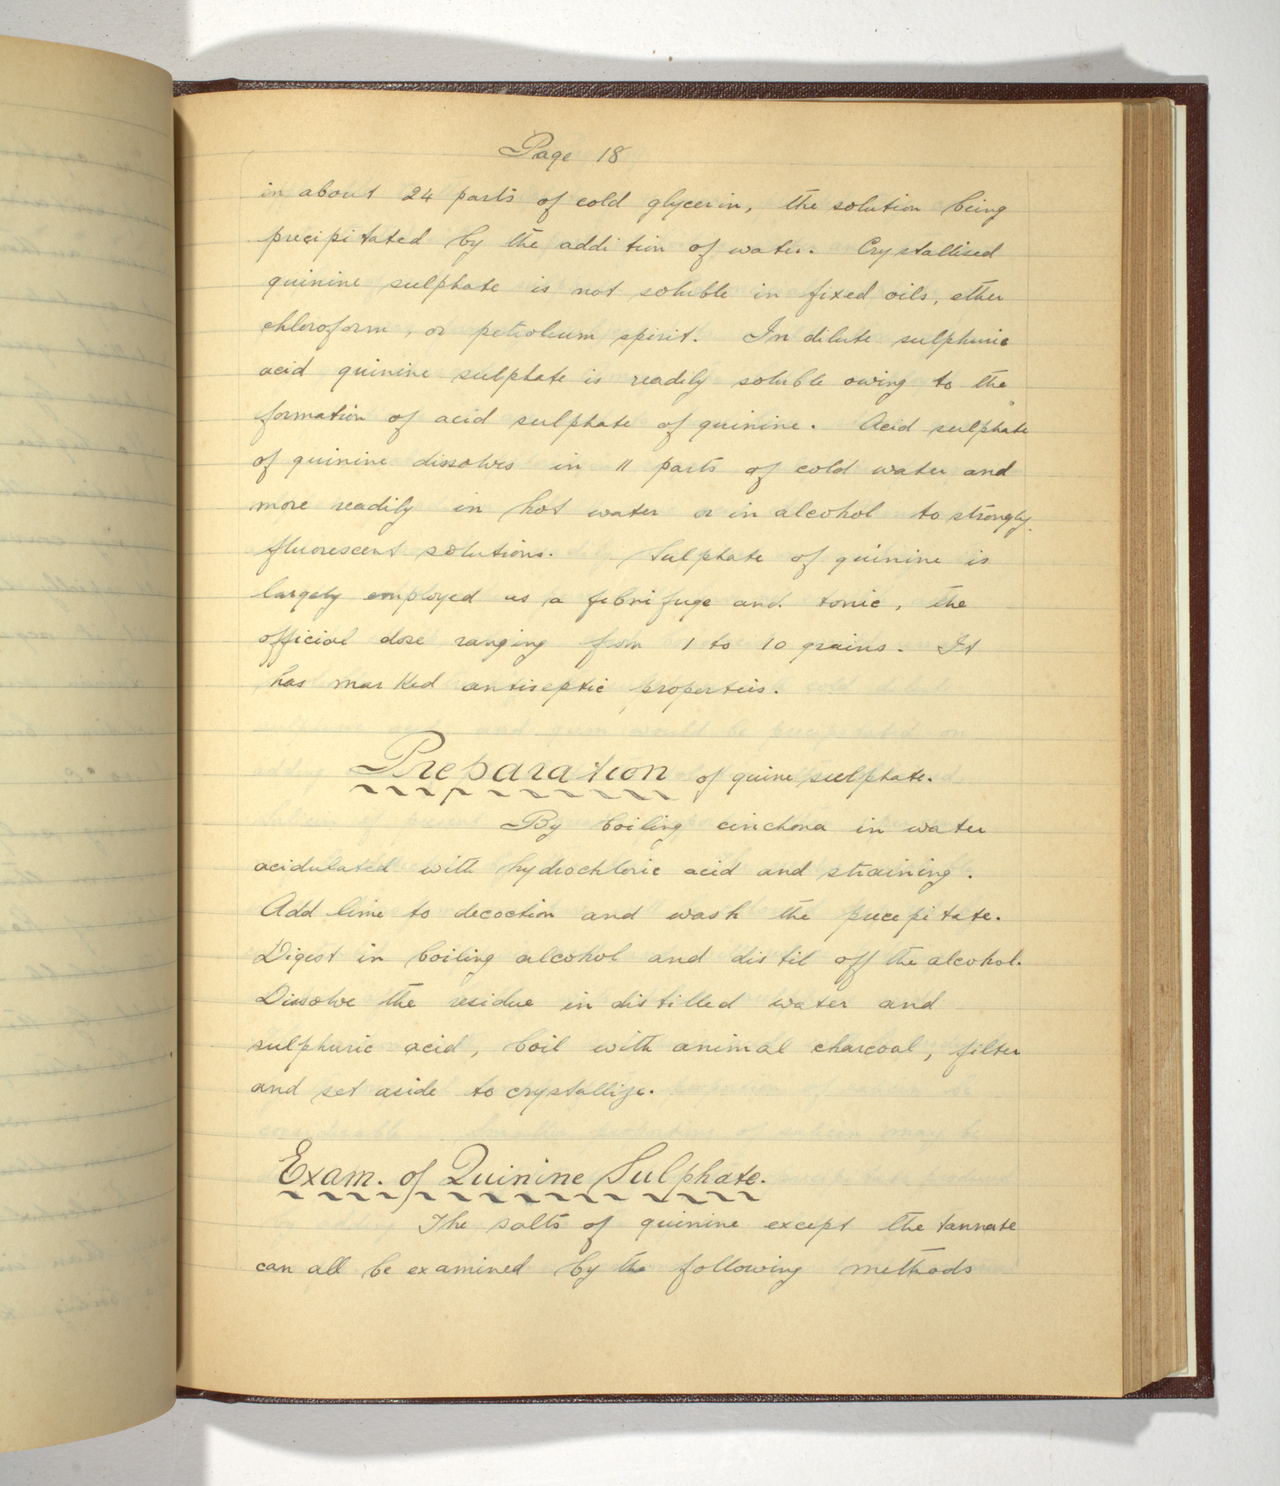 Page 18
in about 24 parts of cold glycerin, the solution being
precipitated by the addition of water. Crystallised
quinine sulphate is not soluble in fixed oils, ether
chloroform, or petroleum spirit. In dilute sulphuric
acid quinine sulphate is readily soluble owing to the
formation of acid sulphate of quinine. Acid sulphate
of quinine dissolves in 11 parts of cold water and
more readily in hot water or in alcohol to strongly
fluorescent solutions. Sulphate of quinine is
largely employed as a febrifuge and tonic, the
official dose ranging from 1 to 10 grains. It
has marked antiseptic properties.
Preparation of quine sulphate.
By boiling cinchona in water
acidulated with hydrochloric acid and straining.
Add lime to decoction and wash the precipitate.
Digest in boiling alcohol and distil off the alcohol.
Dissolve the residue in distilled water and
sulphuric acid, boil with animal charcoal, filter
and set aside to crystallize.
Exam. of Quinine Sulphate.
The salts of quinine except the tannate
can all be examined by the following methods